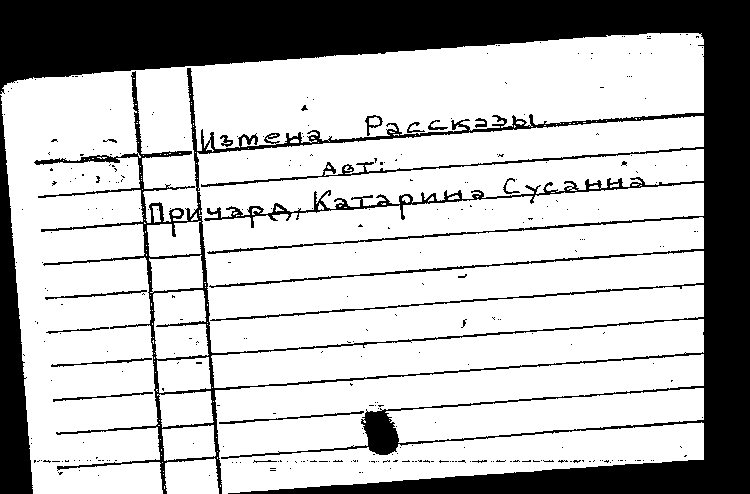 Измена. Рассказы.
Авт:
Причард, Катарина Сусанна.